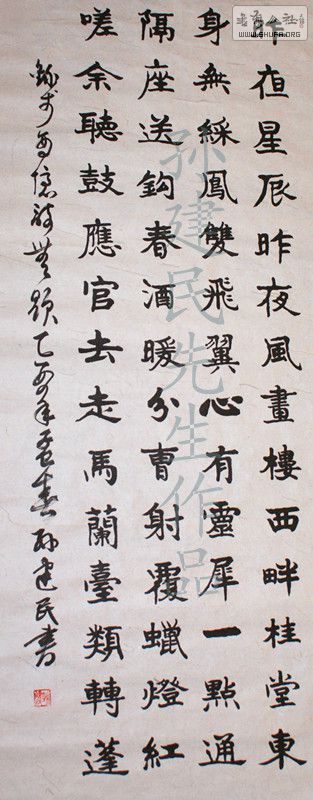 昨夜星辰昨夜風畫樓西畔桂堂東
身無綵鳳雙飛翼心有靈犀一點通
隔座送鈎春酒暖分曹射覆蠟燈紅
嗟余聽鼓應官去走馬蘭臺類轉蓬
錄李商隱詩無題乙酉年孟春孙建民书
孙建民先生作品
书法公社
WWW.SHUFA.ORG